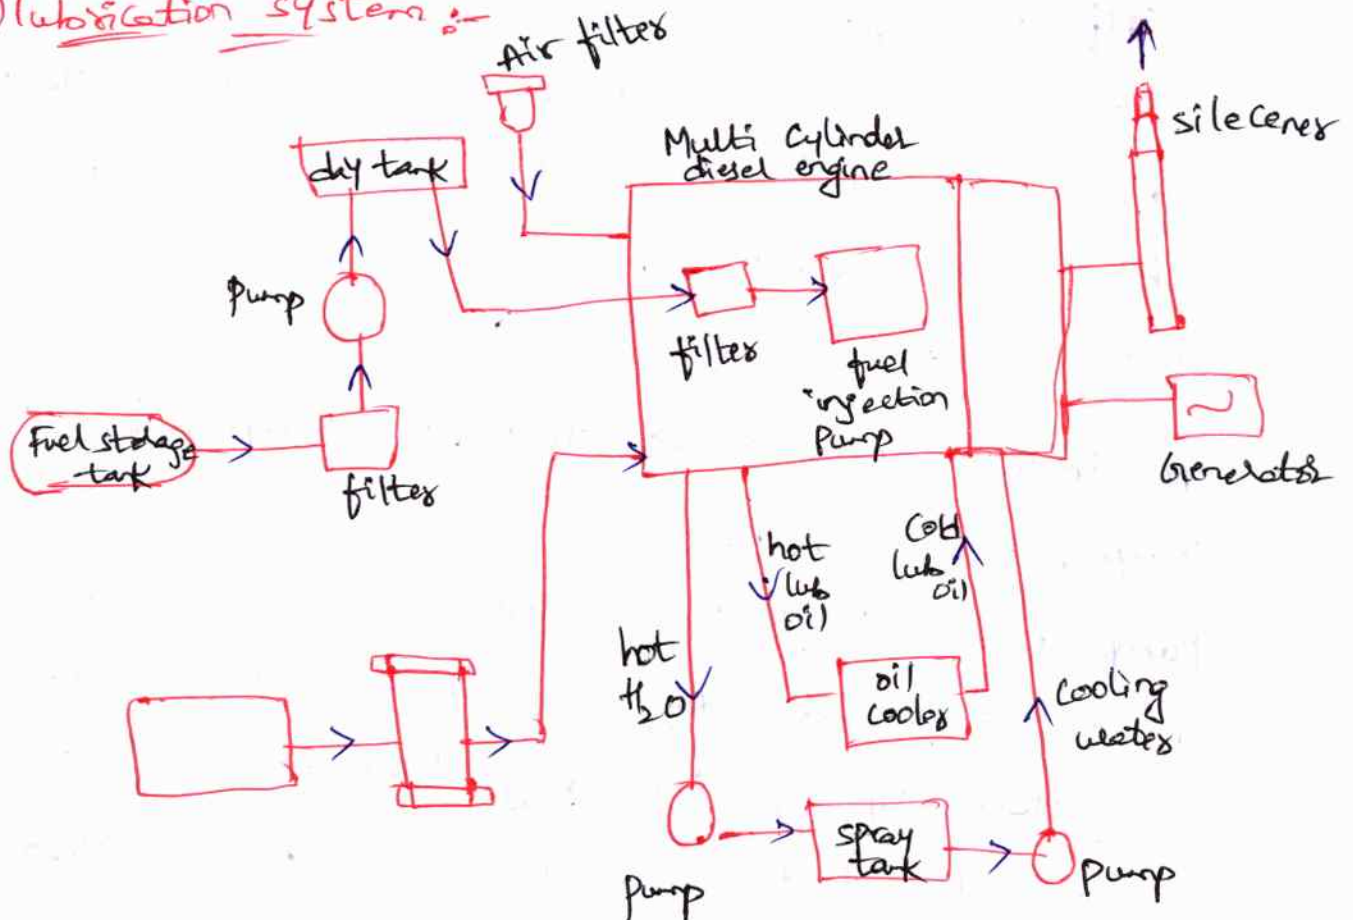 lubrication system :-
Air filter
silecener
Multi Cylinder
diesel engine
day tank
Pump
filter
fuel
injection
Pump
Fuel storage
tank
filter
Generator
hot
lub
oil
Cold
lub
oil
hot
H2O
oil
cooler
cooling
water
spray
tank
Pump
Pump